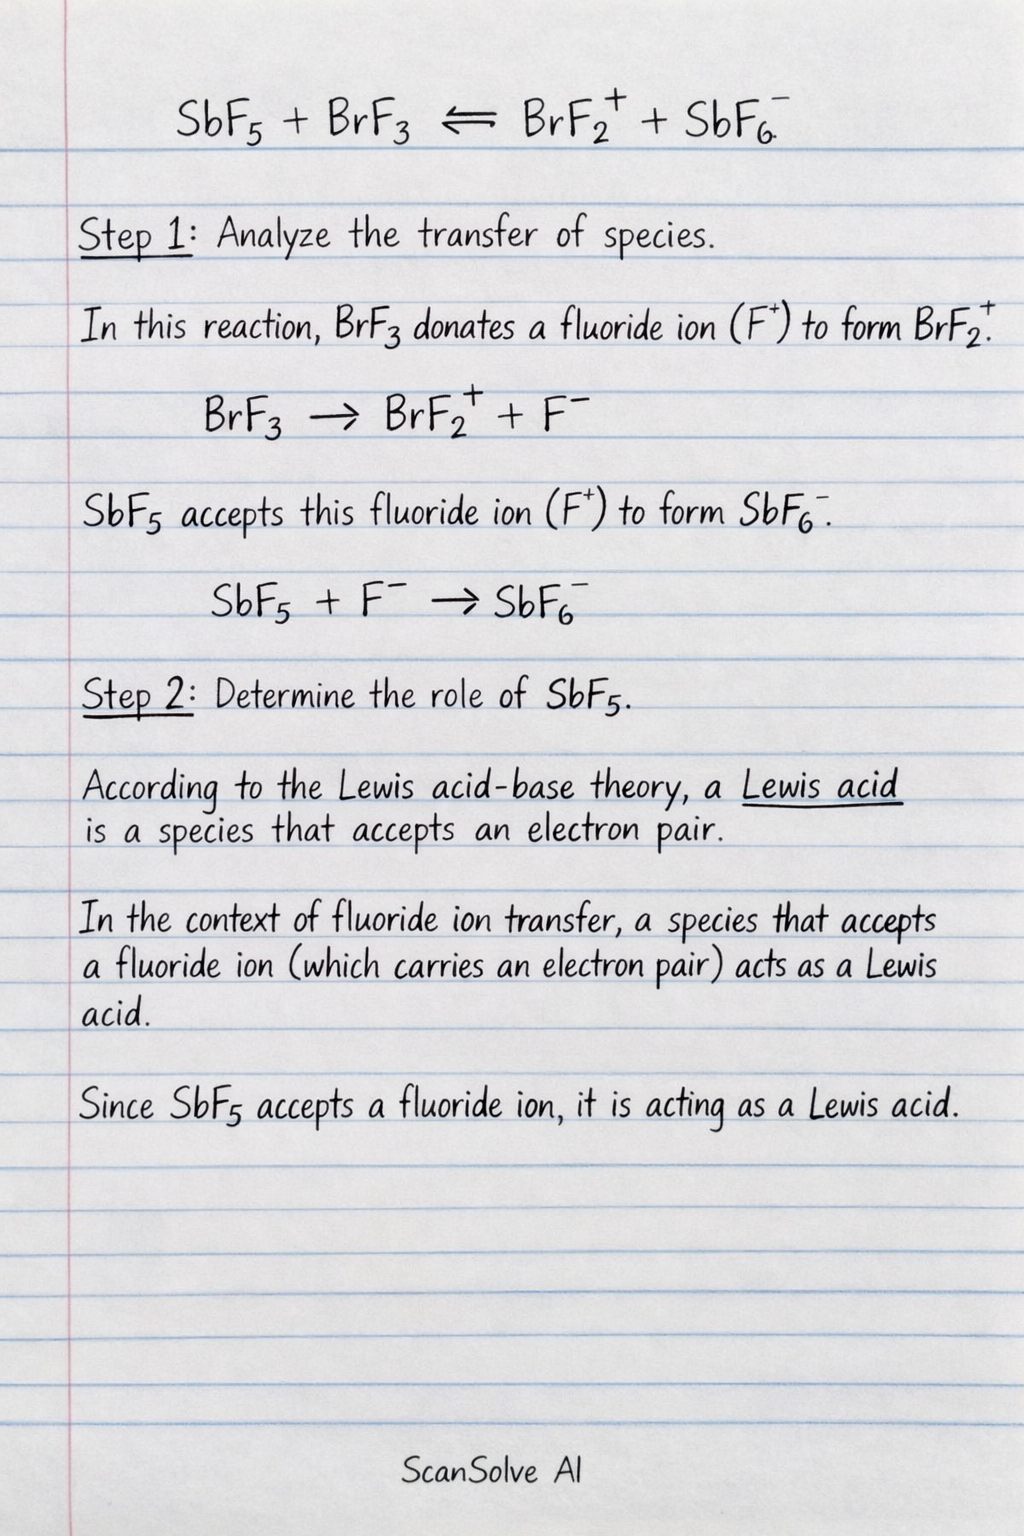 SbF₅ + BrF₃ ⇌ BrF₂⁺ + SbF₆⁻
Step 1: Analyze the transfer of species.
In this reaction, BrF₃ donates a fluoride ion (F⁺) to form BrF₂⁺.
BrF₃ → BrF₂⁺ + F⁻
SbF₅ accepts this fluoride ion (F⁺) to form SbF₆⁻.
SbF₅ + F⁻ → SbF₆⁻
Step 2: Determine the role of SbF₅.
According to the Lewis acid-base theory, a Lewis acid
is a species that accepts an electron pair.
In the context of fluoride ion transfer, a species that accepts
a fluoride ion (which carries an electron pair) acts as a Lewis
acid.
Since SbF₅ accepts a fluoride ion, it is acting as a Lewis acid.
ScanSolve AI